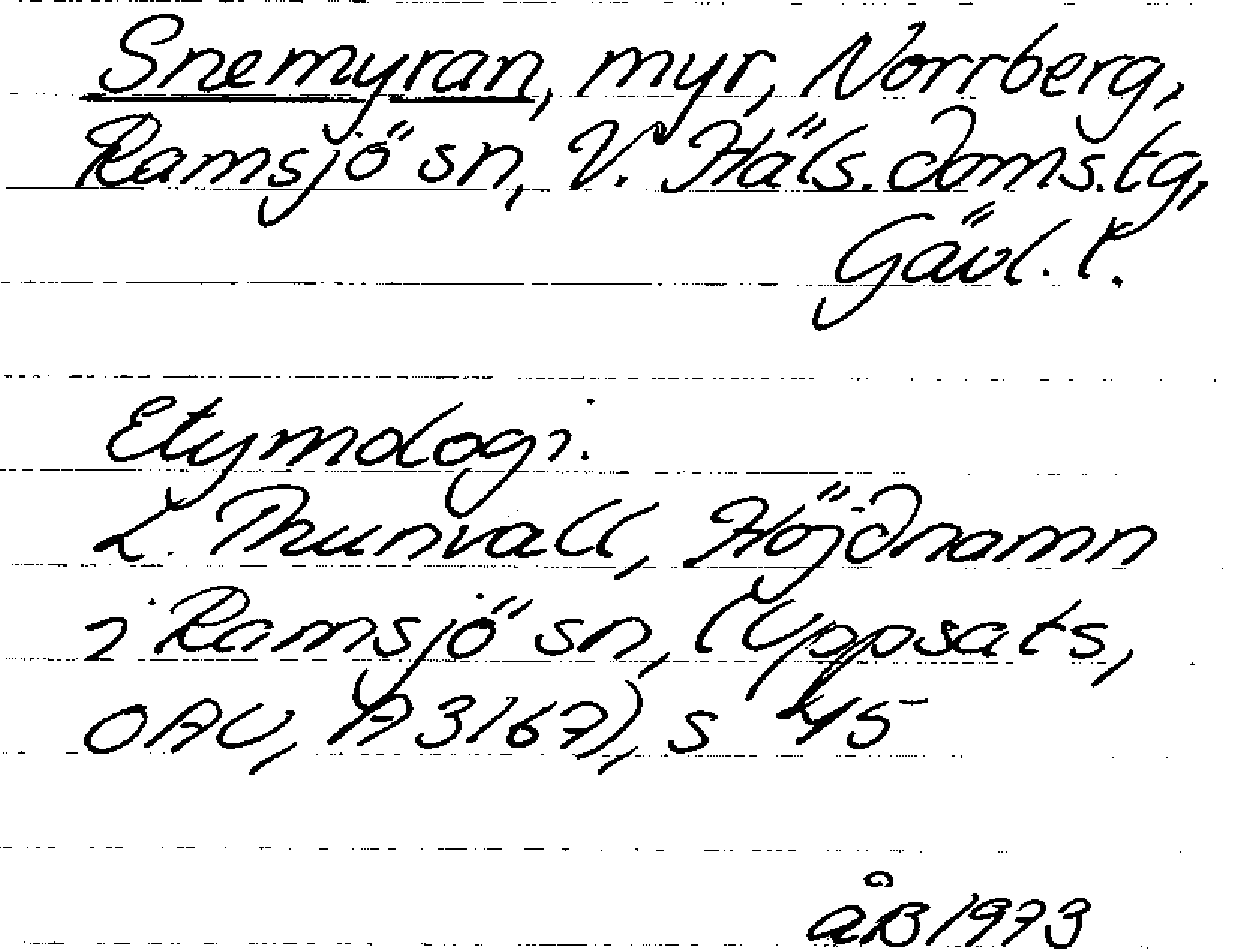 Snemyran, myr, Norrberg,
Ramsjö sn, V. Häls. doms.tg,
Gävl. l.
Etymologi.
L. Thunvall, Höjdnamn
i Ramsjö sn, (Uppsats,
OAU, A 3167), s 45
åB 1973